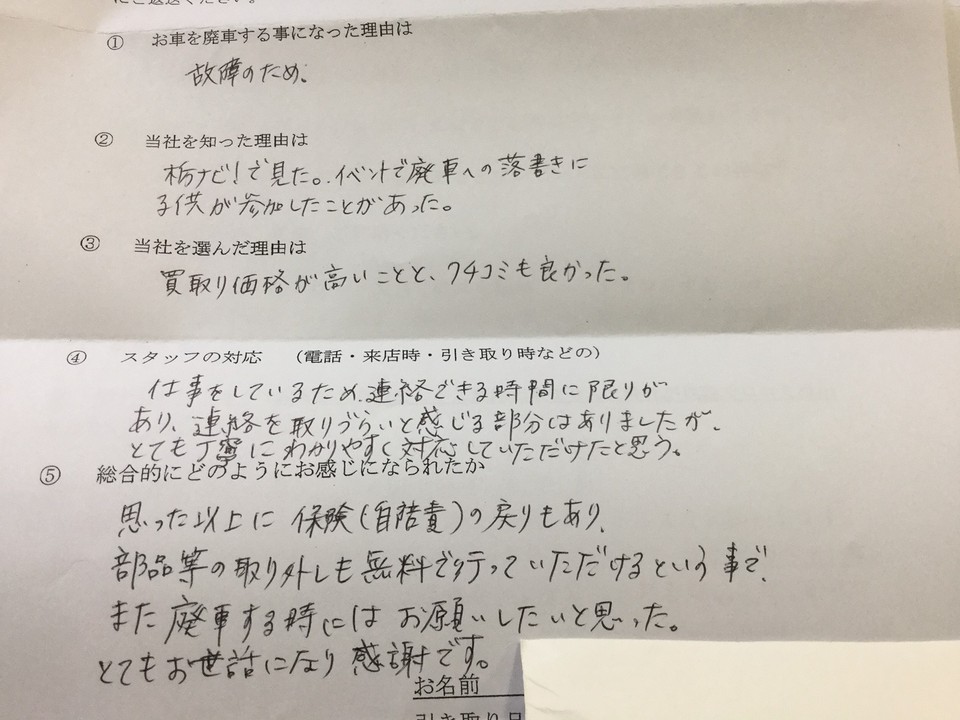 にご返送ください。
① お車を廃車する事になった理由は
故障のため。
② 当社を知った理由は
栃ナビ!で見た。イベントで廃車への落書きに
子供が参加したことがあった。
③ 当社を選んだ理由は
買取り価格が高いことと、クチコミも良かった。
④ スタッフの対応 (電話・来店時・引き取り時などの)
仕事をしているため、連絡できる時間に限りが
あり、連絡を取りづらいと感じる部分はありましたが、
とても丁寧にわかりやすく対応していただけたと思う。
⑤ 総合的にどのようにお感じになられたか
思った以上に保険(自陪責)の戻りもあり、
部品等の取り外しも無料で行っていただけるという事で、
また廃車する時にはお願いしたいと思った。
とてもお世話になり感謝です。
お名前
引き取り日